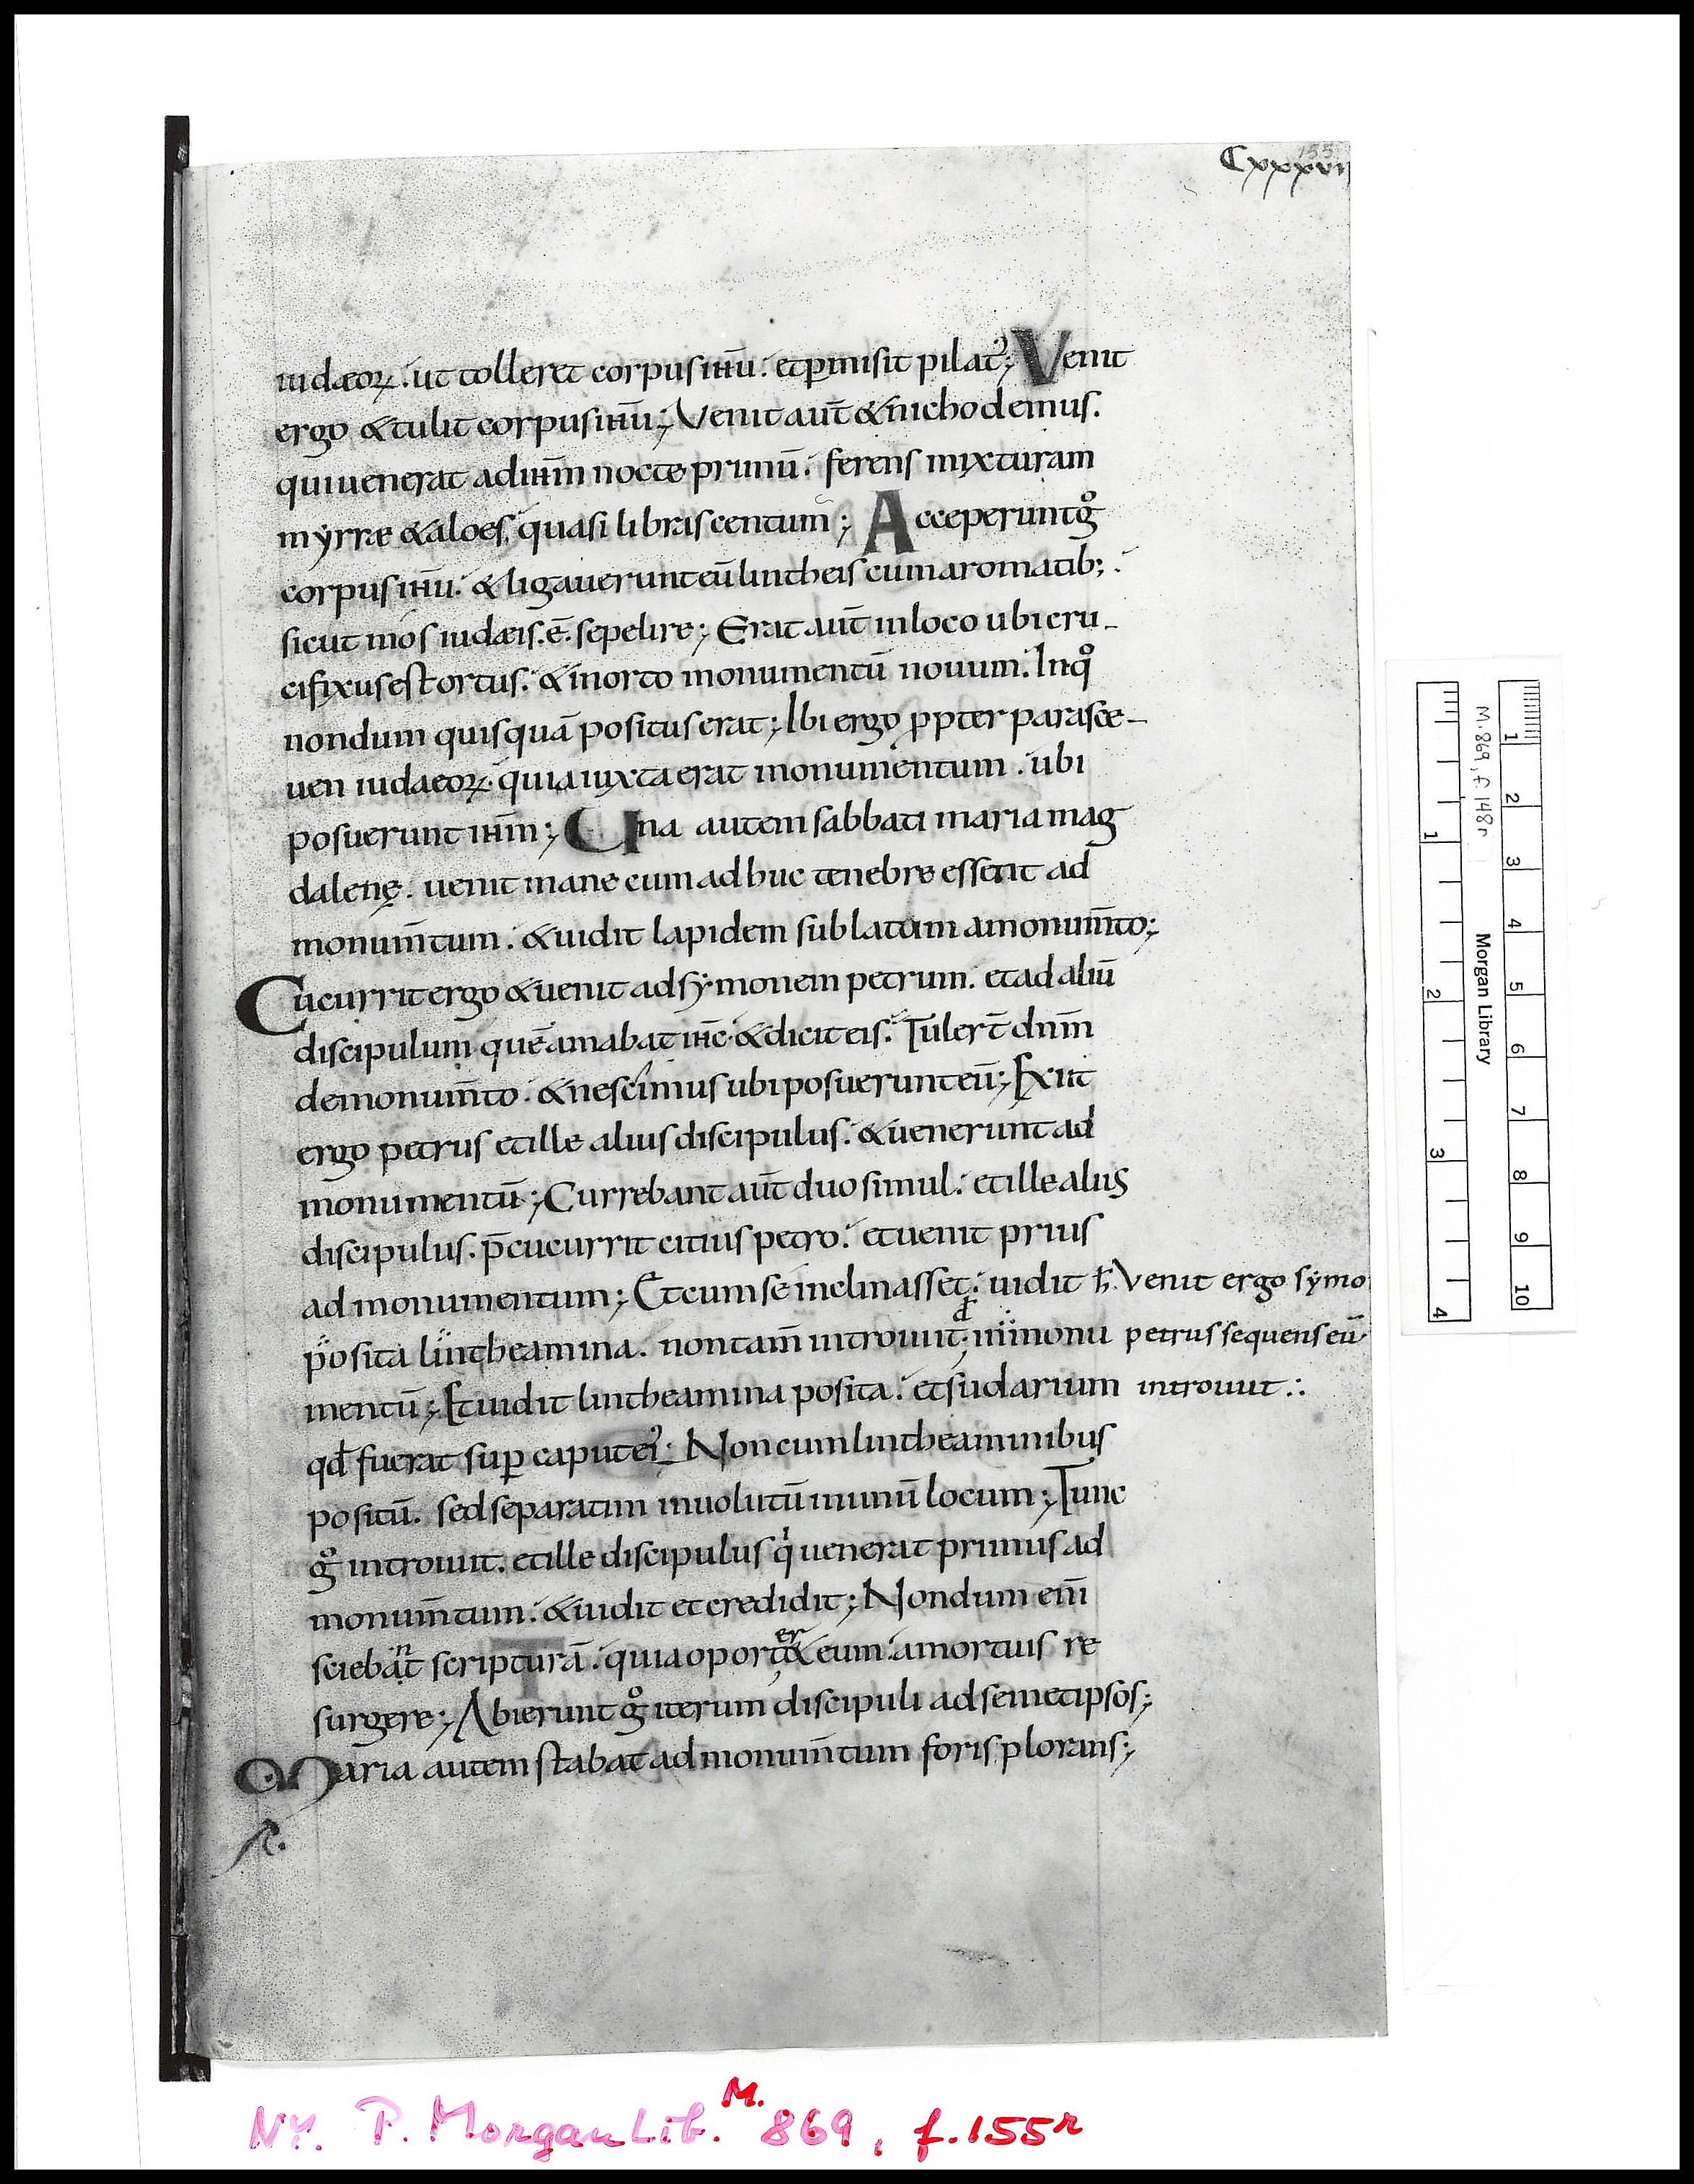 Cxxxvii
155
iudæoꝝ. ut tolleret corpus ihu̅. et ꝑmisit pilatꝰ; Venit
ergo & tulit corpus ihu̅; Venit aut̅ & nichodemus.
qui uenerat ad ihm̅ nocte primu̅. ferens mixturam
myrræ & aloes. quasi libras centum; Acceperunt gͦ
corpus ihu̅. & ligauerunt eu̅ lintheis cum aromatib;.
sicut mos iudæis. e̅. sepelire; Erat aut̅ in loco ubi cru-
cifixus est ortus. & in orto monumentu̅ nouum. In qͦ
nondum quisqua̅ positus erat; Ibi ergo ꝓpter parasce-
uen iudaeoꝝ. quia iuxta erat monumentum. ubi
posuerunt ihm̅; Una autem sabbati maria mag
dalenę. uenit mane cum adhuc tenebre essent ad
monum̅tum. & uidit lapidem sublatum a monum̅to;
Cucurrit ergo & uenit ad symonem petrum. et ad aliu̅
discipulum que̅ amabat ihc̅. & dicit eis. Tuler̅t dnm̅
de monum̅to. & nescimus ubi posuerunt eu̅; Exiit
ergo petrus et ille alius discipulus. & uenerunt ad
monumentu̅; Currebant aut̅ duo simul. et ille alius
discipulus. p̅cucurrit citius petro. et uenit prius
ad monumentum; Et cum se inclinasset. uidit
posita lintheamina. non tam̅ introiuit; in monu
ħ. Venit ergo symo
petrus sequens eu̅.
introiuit.:
mentu̅; Et uidit lintheamina posita. et sudarium
qd̅ fuerat suꝑ caput eiꝰ. Non cum lintheaminibus
positu̅. sed separatim inuolutu̅ in unu̅ locum; Tunc
gͦ introiuit. et ille discipulus qⁱ uenerat primus ad
monum̅tum. & uidit et credidit; Nondum eni̅
sciebant scriptura̅. quia oporter& eum. a mortuis re
surgere; Abierunt gͦ iterum discipuli ad semetipsos;
Maria autem stabat ad monum̅tum foris plorans;
M.869, f. 148r
Morgan Library
1 2 3 4 5 6 7 8 9 10
1 2 3 4
NY. P. Morgan Lib. M. 869, f. 155r